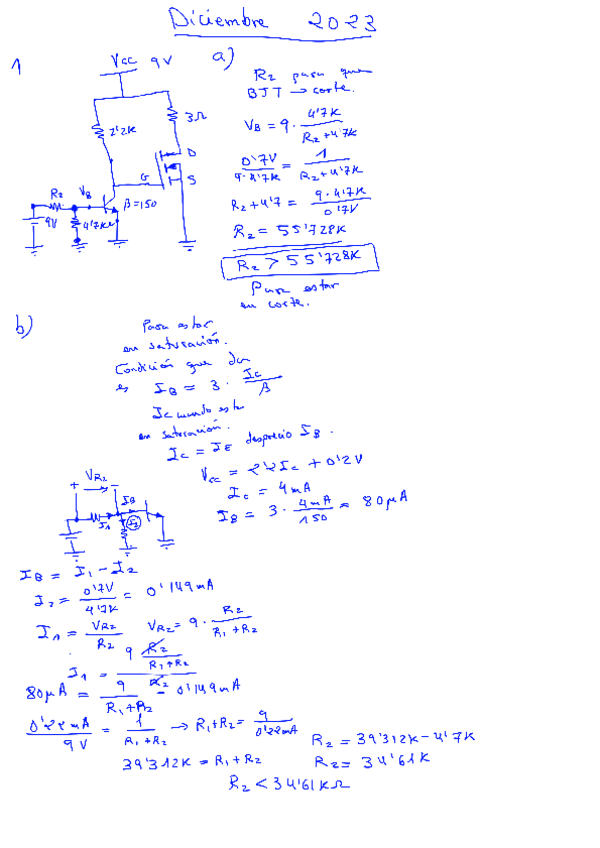 Diciembre 2023
1
Vcc 9V
a)
R2 para que
BJT → corte.
2'2K
3Ω
D
G
S
VB = 9 · 4'7K / (R2+4'7K)
0'7V / (9·4'7K) = 1 / (R2+4'7K)
R2
VB
β=150
9V
4'7K
R2+4'7 = 9·4'7K / 0'7V
R2 = 55'728K
R2 > 55'728K
Para estar
en corte.
b)
Para estar
en saturación.
Condición que dan
es IB = 3 · Ic/β
Ic cuando este
en saturación.
Ic = IE desprecio IB.
Vcc = 2'2Ic + 0'2V
Ic = 4mA
IB = 3 · 4mA/150 = 80μA
+ VR2 -
IB
I1
I2
IB = I1 - I2
I2 = 0'7V/4'7K = 0'149mA
I1 = VR2/R2 VR2 = 9 · R2/(R1+R2)
I1 = 9 R2/(R1+R2) / R2
80μA = 9/(R1+R2) - 0'149mA
0'22mA/9V = 1/(R1+R2) → R1+R2 = 9/0'22mA
39'312K = R1+R2
R2 = 39'312K - 4'7K
R2 = 34'61K
R2 < 34'61KΩ